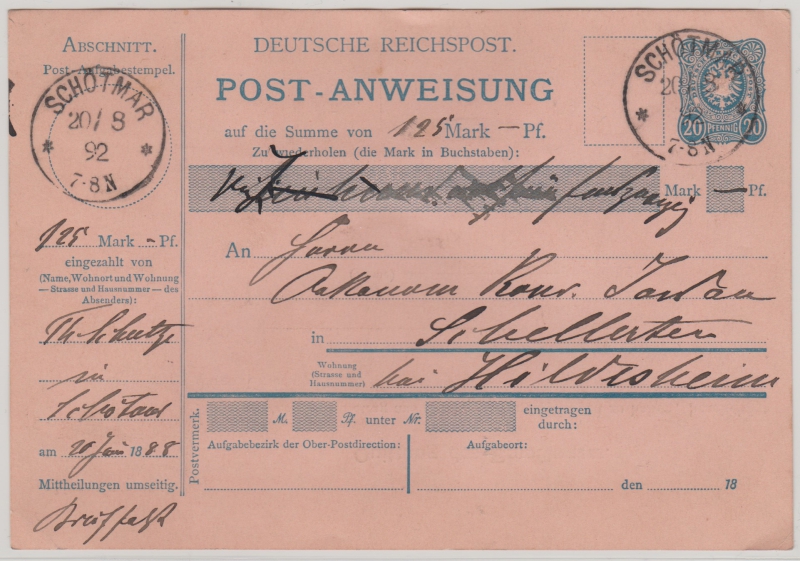 ABSCHNITT.
Post-Aufgabestempel.
SCHÖTMAR
20/8
92
7-8N
125 Mark - Pf.
eingezahlt von
(Name, Wohnort und Wohnung
— Strasse und Hausnummer — des
Absenders):
in
am 20 18 88
Mittheilungen umseitig.
DEUTSCHE REICHSPOST.
POST-ANWEISUNG
auf die Summe von 125 Mark — Pf.
Zu wiederholen (die Mark in Buchstaben):
Mark — Pf.
SCHÖTMAR
7-8N
20 PFENNIG 20
An Herrn
Oekonom
in Schellerten
Wohnung
(Strasse und
Hausnummer)
bei Hildesheim
Postvermerk.
M. Pf. unter Nr. eingetragen
durch:
Aufgabebezirk der Ober-Postdirection:
Aufgabeort:
den 18